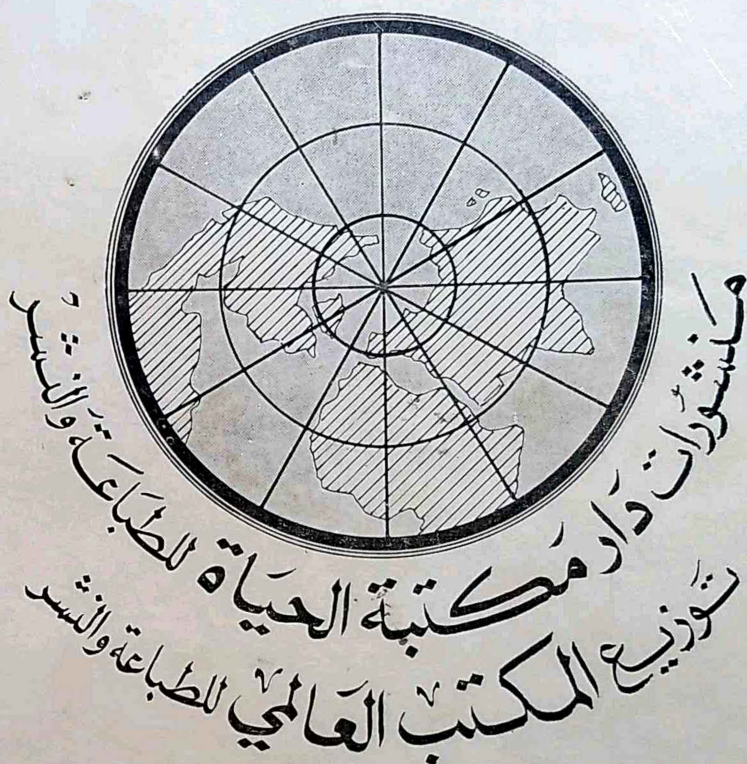 مَنشورَات دَار مَكتبة الحيَاة للطبَاعَة وَالنشر
تَوزيع المكتب العَالمي للطباعة والنشر